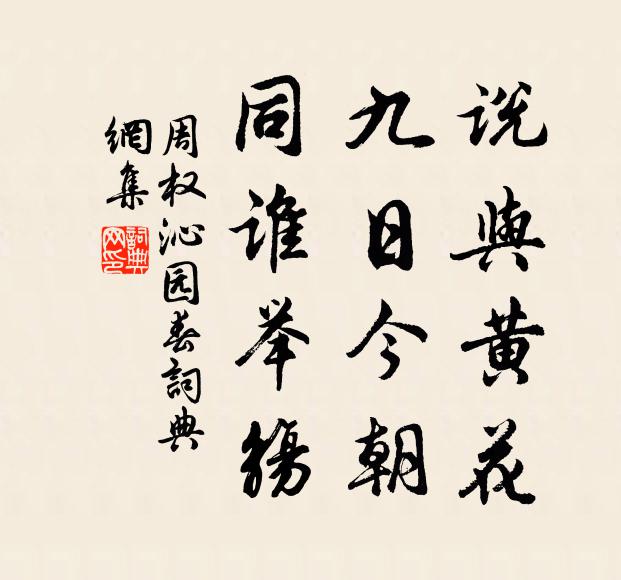 说与黄花
九日今朝
同谁举觞
周权沁园春詞典
網集
詞典
网印